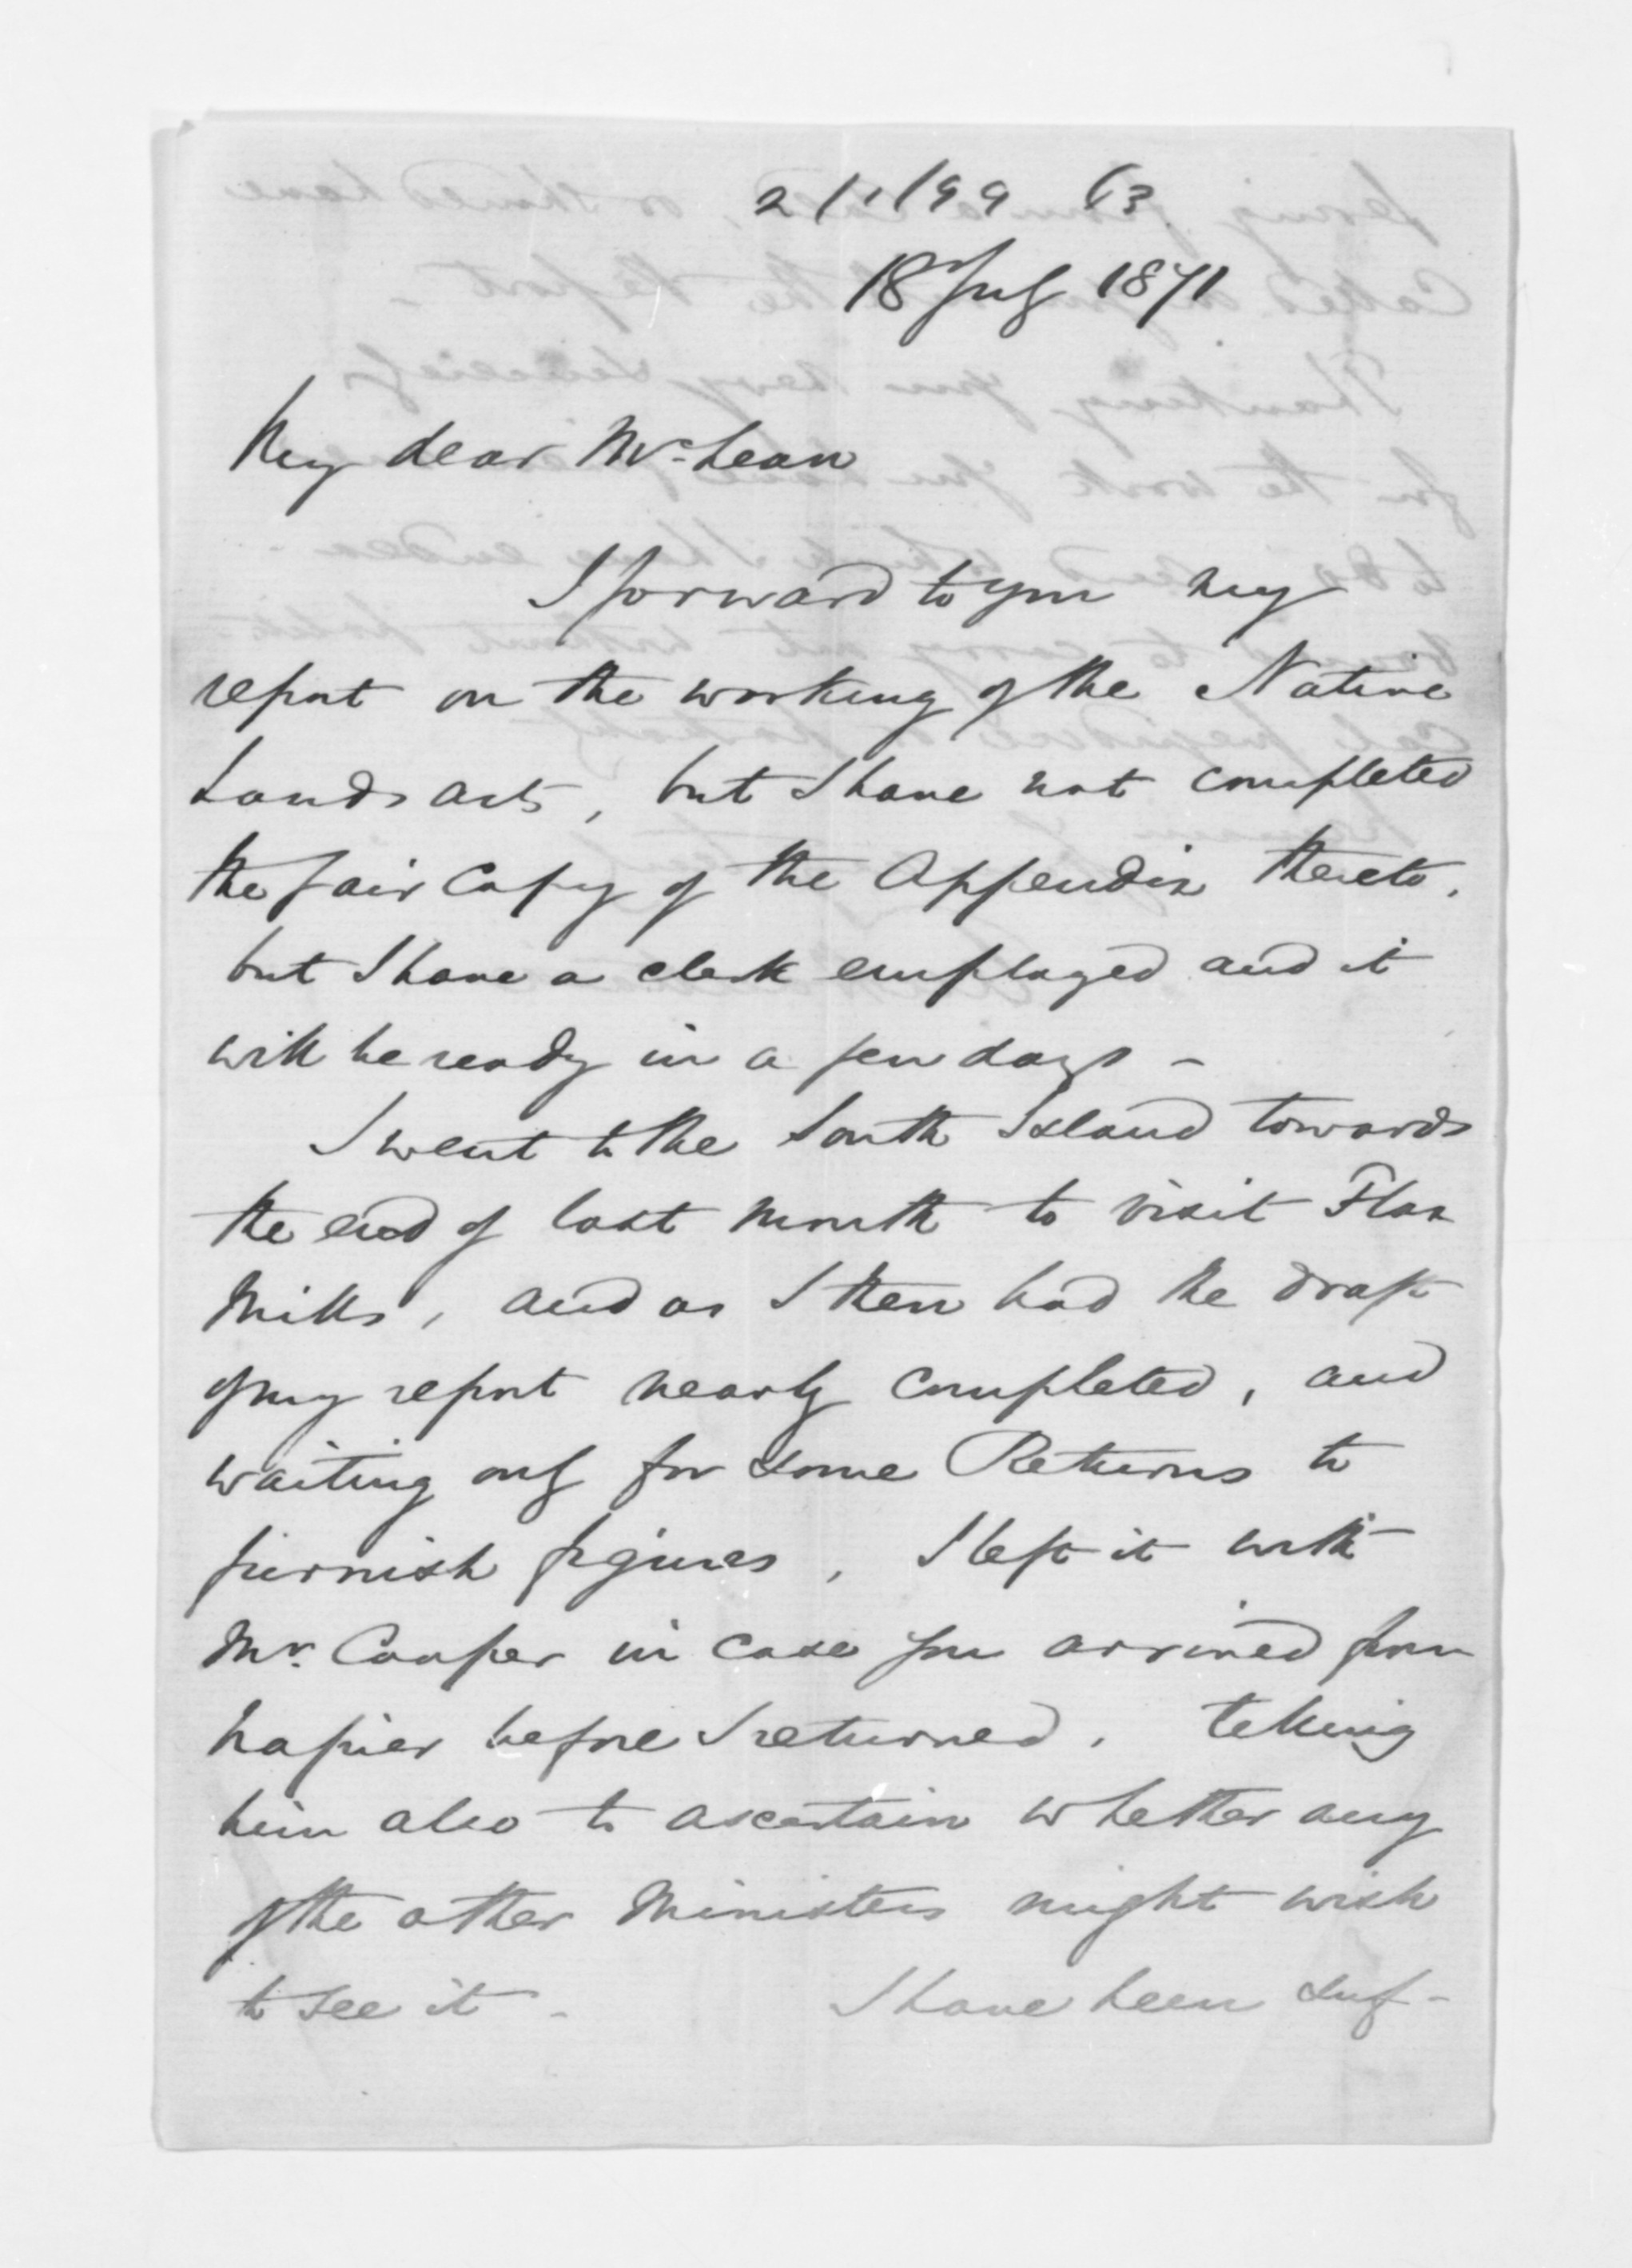 2/1/99 63
18 July 1871
My dear McLean
I forward to you my
report on the working of the Native
Lands Acts, but I have not completed
the fair Copy of the Appendix thereto.
but I have a clerk employed and it
will be ready in a few days -
I went to the South Island towards
the end of last month to visit Flax
Mills, and as I then had the draft
of my report nearly completed, and
waiting only for some Returns to
furnish figures, I left it with
Mr. Cooper in case you arrived from
Napier before I returned. telling
him also to ascertain whether any
of the other Ministers might wish
to see it - I have been suf-